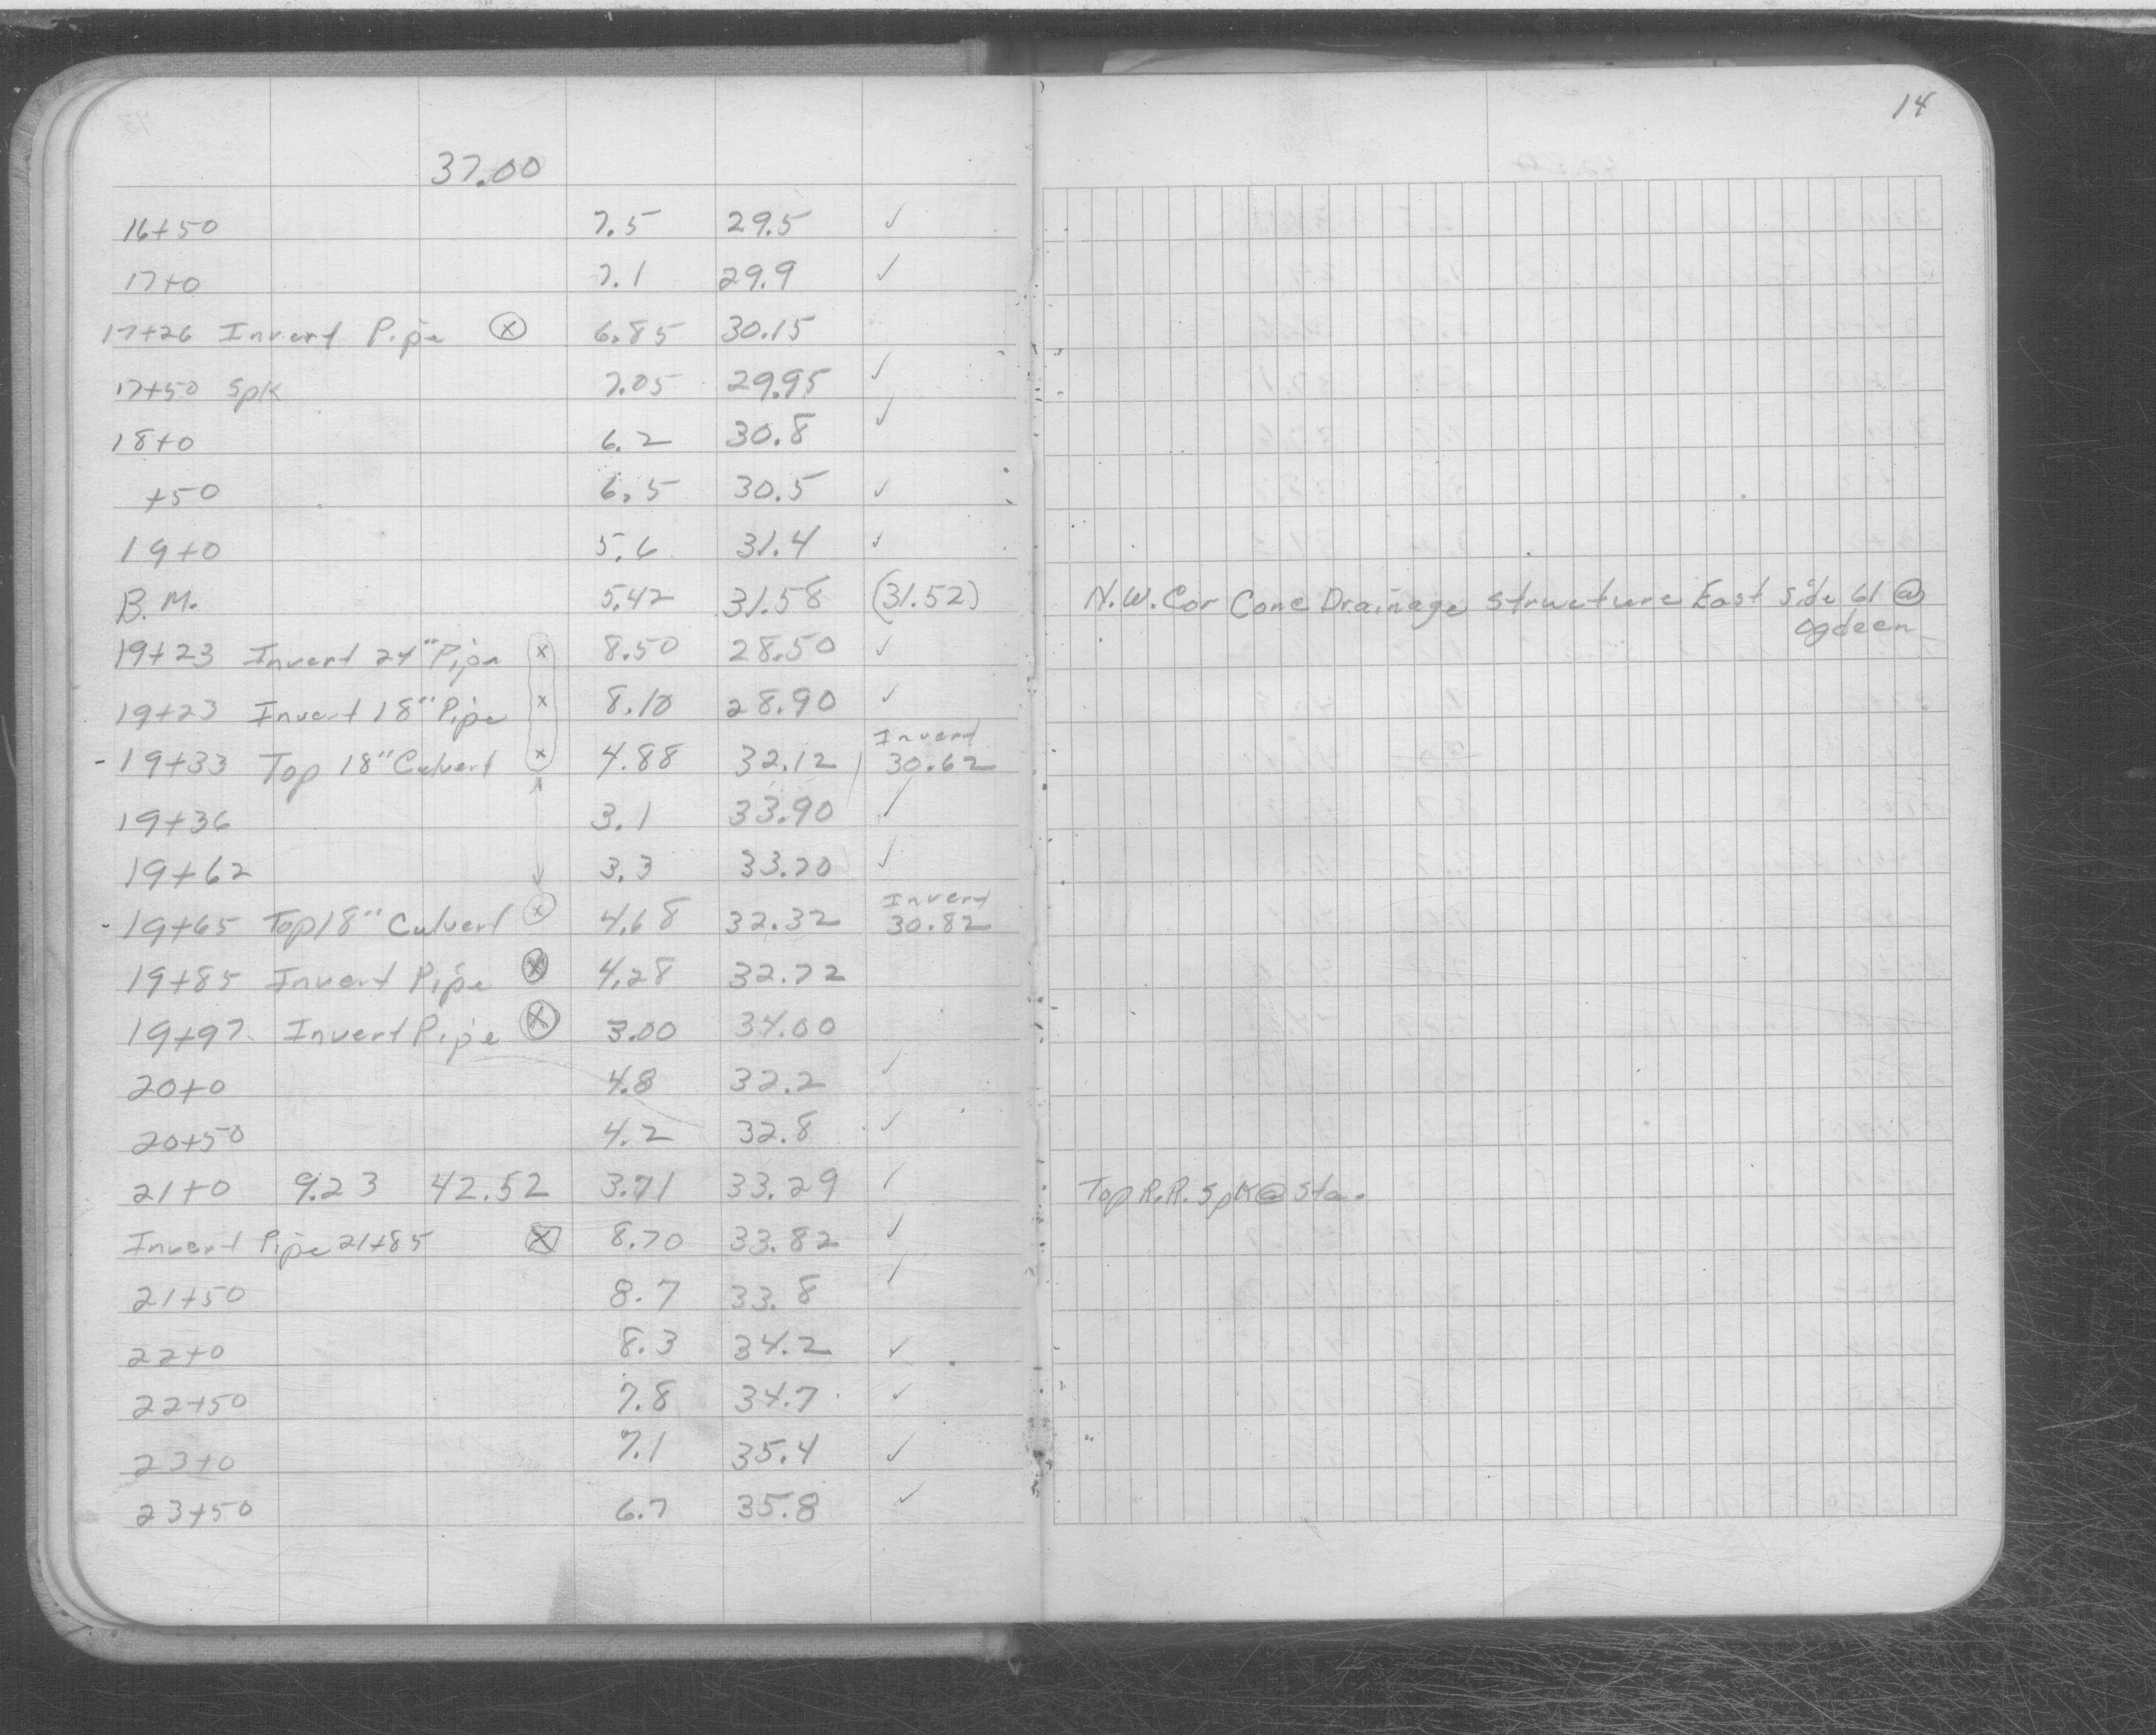 14
37.00
16+50 7.5 29.5 ✓
17+0 7.1 29.9 ✓
17+26 Invert Pipe ⓧ 6.85 30.15
17+50 Spk 7.05 29.95 ✓
18+0 6.2 30.8 ✓
+50 6.5 30.5 ✓
19+0 5.6 31.4 ✓
B.M. 5.42 31.58 (31.52) N.W. Cor Conc Drainage Structure East Side 61 @
Ogdeen
19+23 Invert 24" Pipe x 8.50 28.50 ✓
19+23 Invert 18" Pipe x 8.10 28.90 ✓
Invert
-19+33 Top 18" Culvert x 4.88 32.12 / 30.62
19+36 3.1 33.90 ✓
19+62 3.3 33.70 ✓
Invert
-19+65 Top 18" Culvert ⓧ 4.68 32.32 30.82
19+85 Invert Pipe ⓧ 4.28 32.72
19+97 Invert Pipe ⓧ 3.00 34.00
20+0 4.8 32.2 ✓
20+50 4.2 32.8 ✓
21+0 9.23 42.52 3.71 33.29 ✓ Top R.R. Spk @ Sta.
Invert Pipe 21+85 ☒ 8.70 33.82 ✓
21+50 8.7 33.8 ✓
22+0 8.3 34.2 ✓
22+50 7.8 34.7 ✓
23+0 7.1 35.4 ✓
23+50 6.7 35.8 ✓